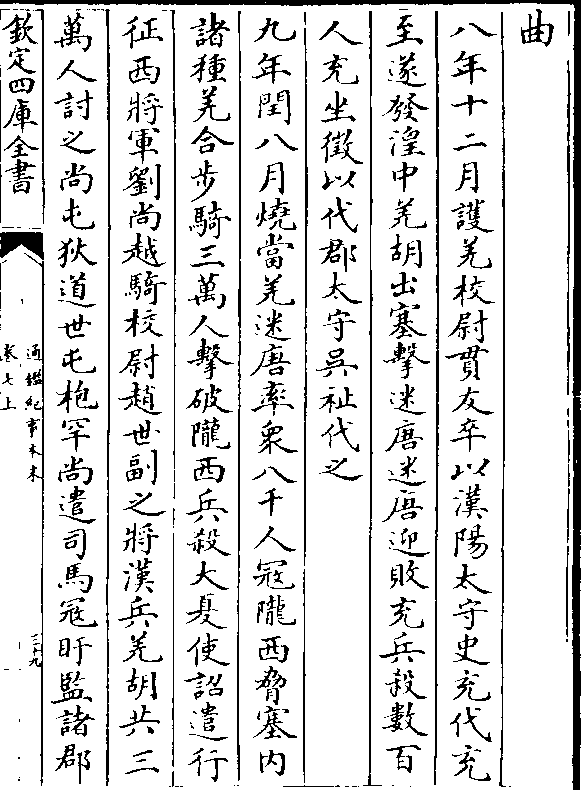 曲
八年十二月護羌校尉貫友卒以漢陽太守史充代充
至遂發湟中羌胡出塞擊迷唐迷唐迎敗充兵殺數百
人充坐徵以代郡太守吳祉代之
九年閏八月燒當羌迷唐率衆八千人冦隴西脅塞内
諸種羌合步騎三萬人擊破隴西兵殺大夏使詔遣行
征西將軍劉尚越騎校尉趙世副之將漢兵羌胡共三
萬人討之尚屯狄道世屯枹罕尚遣司馬冦盱監諸郡
欽定四庫全書
通鑑紀事本末
卷七上
三十九